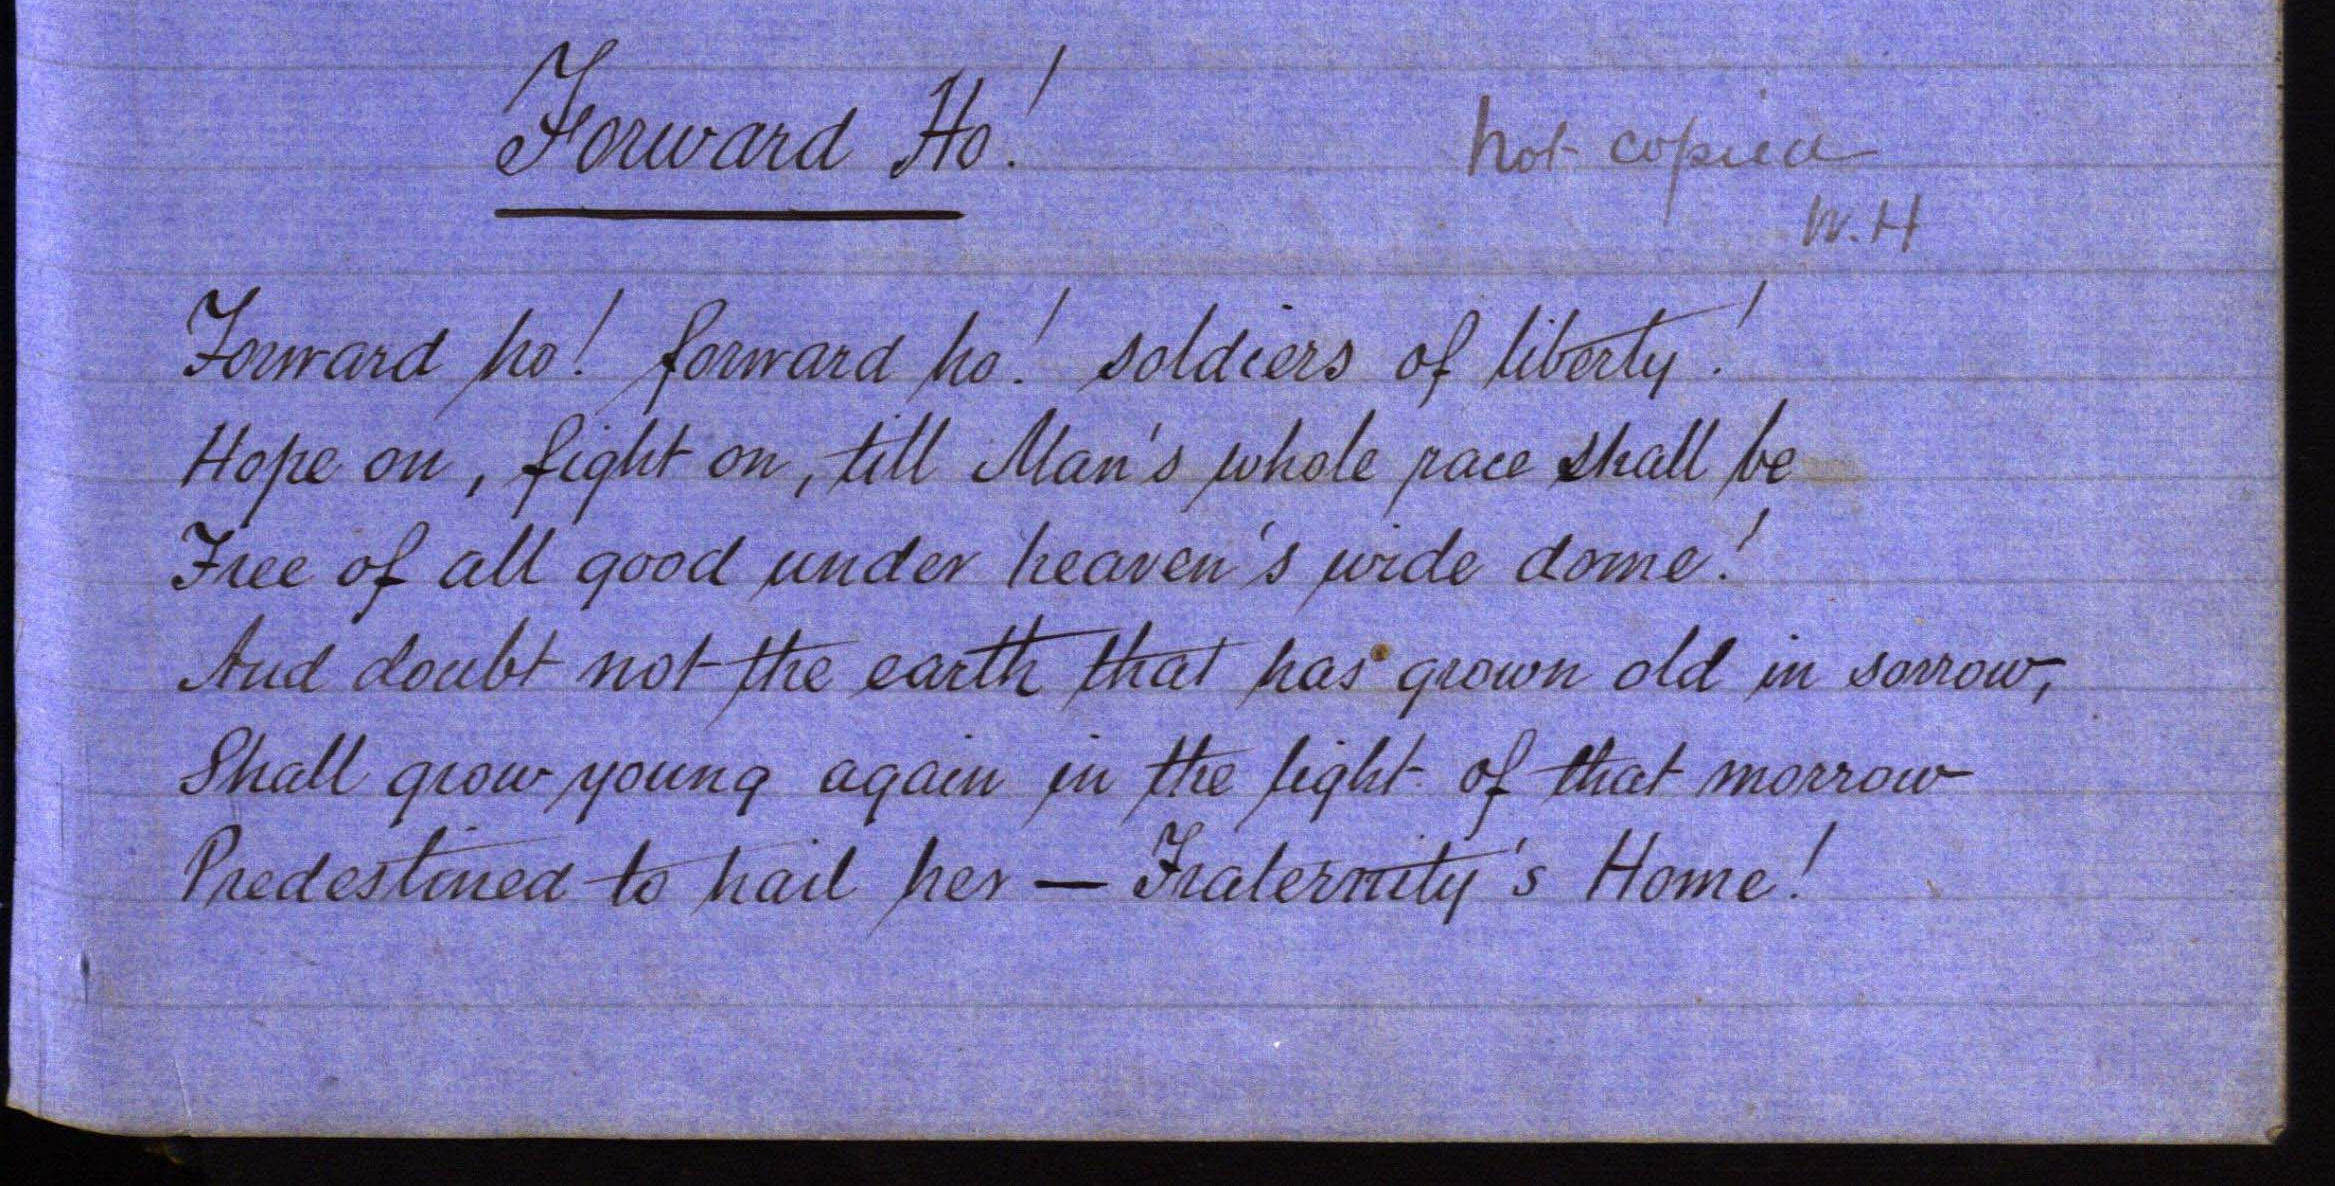 Forward Ho!
not copied
W.H
Forward ho! forward ho! soldiers of liberty!
Hope on, fight on, till Man's whole race shall be
Free of all good under heaven's wide dome!
And doubt not the earth that has grown old in sorrow,
Shall grow young again in the light of that morrow
Predestined to hail her — Fraternity's Home!